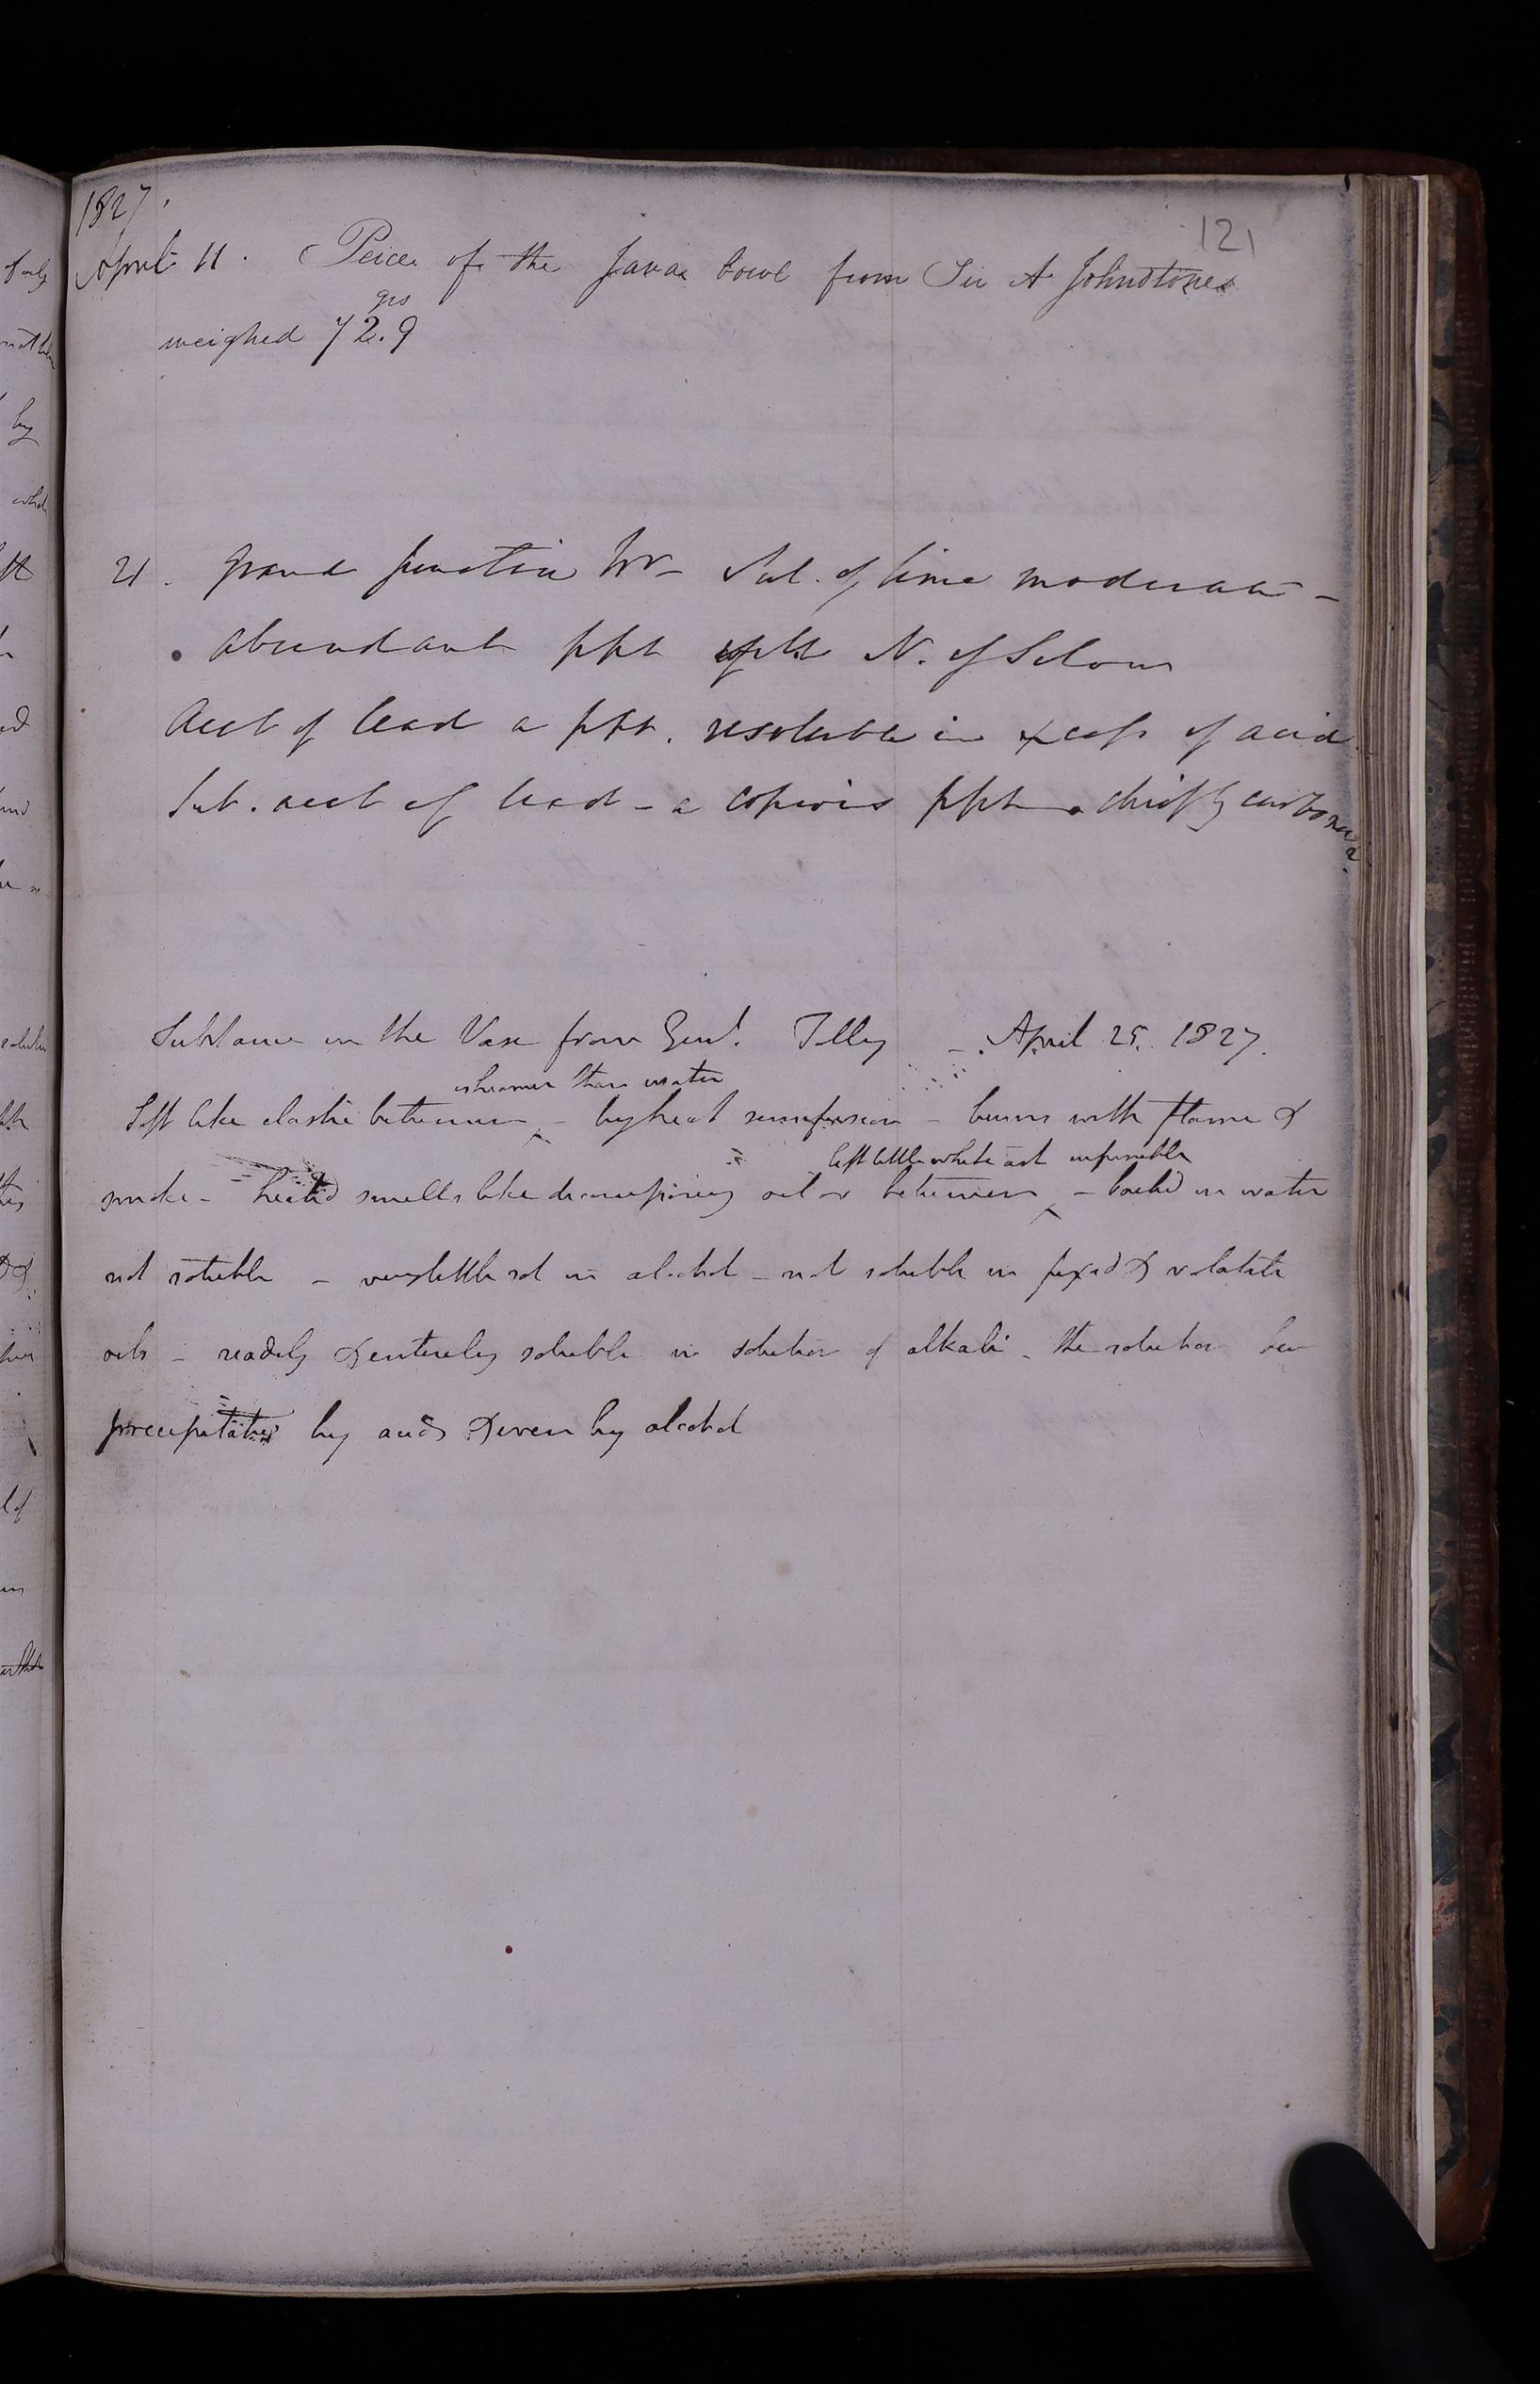 121
1827.
April 11. Peice of the Java bowl from Sir A Johnstone
grs
weighed 72.9
21. Grand Junction Wr - Sul. of lime moderate -
abundant ppt with N. of Silver
Acet of lead a ppt. resoluble in excess of acid
Sub. acet of lead - a copious ppt chiefly carbonate.
Substance in the Vase from Genl. Tilley - April 25. 1827.
is heavier than water
Soft like elastic bitumen - by heat semifusion - burns with flame &
left little white ash infusible
smoke - heated smells like decomposing oil or bitumen - boiled in water
not soluble - very little sol in alcohol - not soluble in fixed & volatile
oils - readily & entirely soluble in solution of alkali - the solution
precipitated by acids & even by alcohol